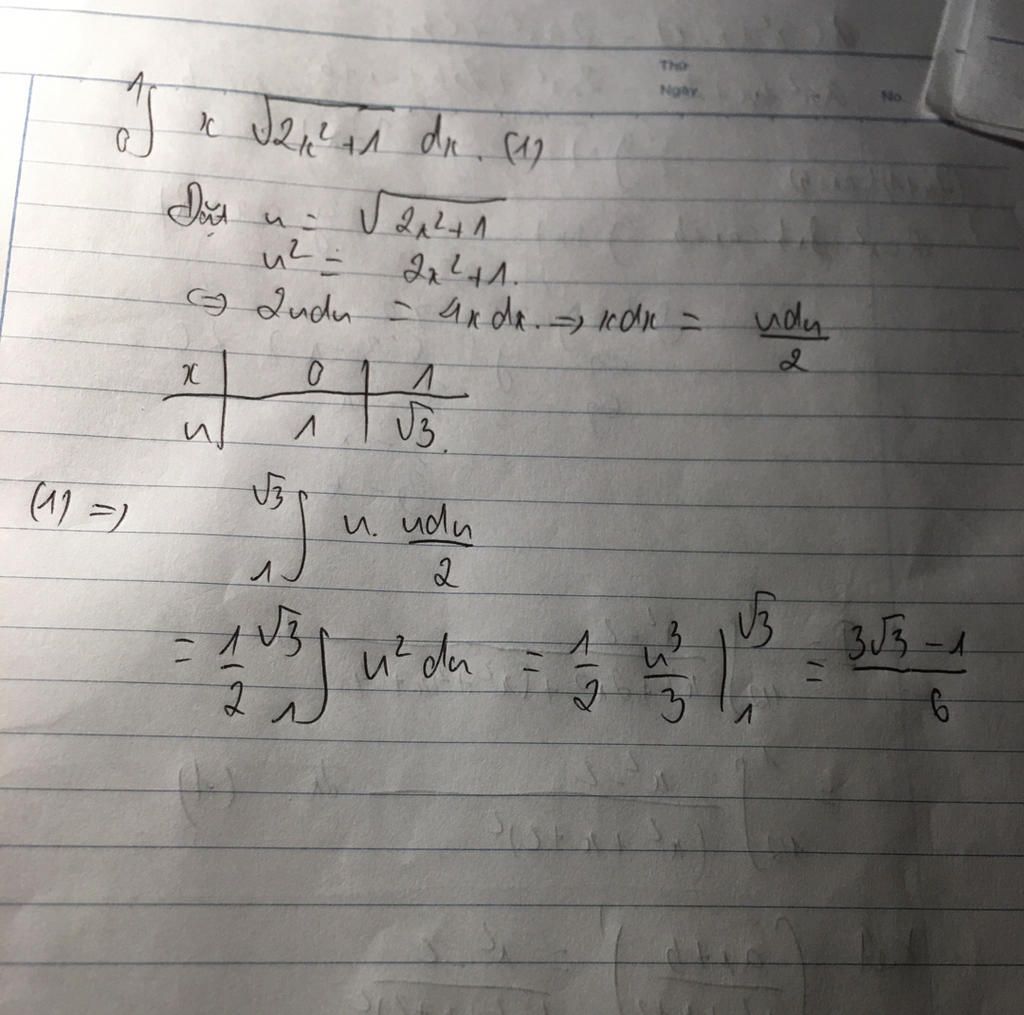 Thứ
Ngày No.
∫₀¹ x √(2x²+1) dx. (1)
Đặt u = √(2x²+1)
u² = 2x²+1.
⇔ 2udu = 4x dx. ⇒ xdx = udu/2
x | 0 | 1
u | 1 | √3.
(1) ⇒ ∫₁^√3 u. udu/2
= 1/2 ∫₁^√3 u² du = 1/2 u³/3 |₁^√3 = (3√3 - 1)/6